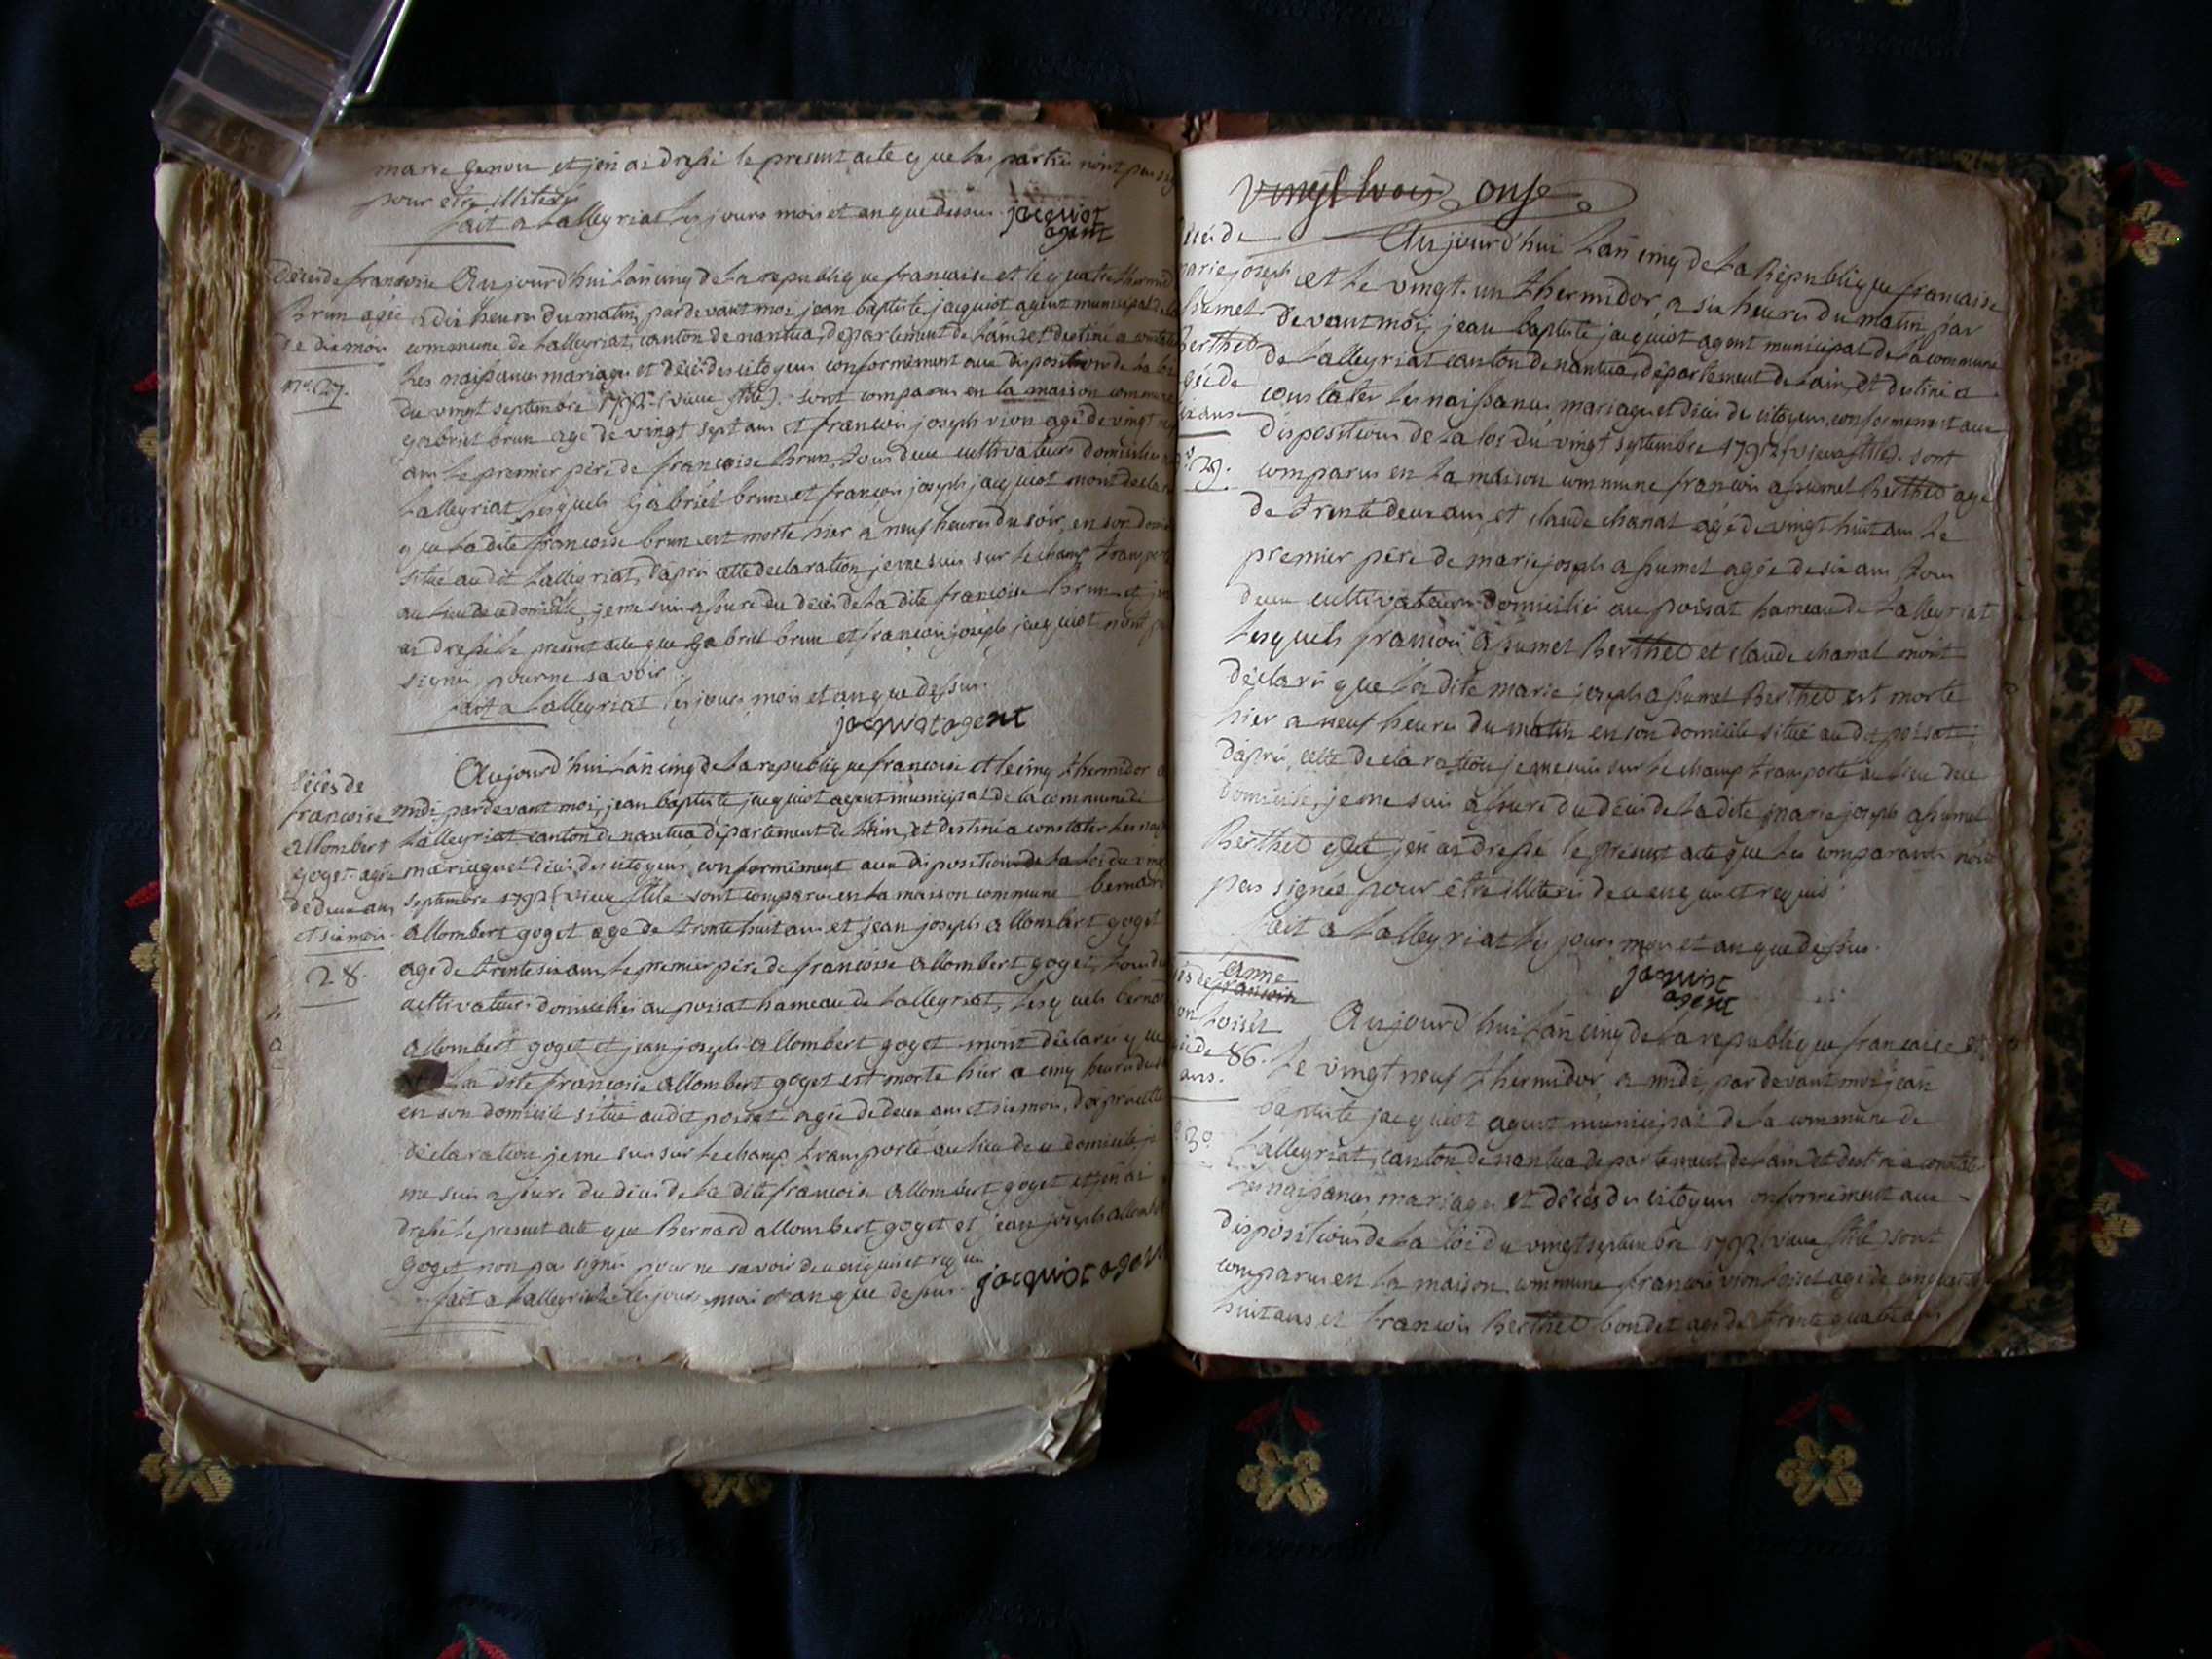 marie genoir et jen ai dressé le present acte que les parties nont pas
pour etre illiteré
fait a Lalleyriat les jours mois et an que dessus. jacquiot
agent
décès de francoise
Brun agée
de dix mois
n°. 27.
Aujourd'hui l'an cinq de la republique francaise et le quatre thermid
a dix heures du matin, pardevant moi jean baptiste jacquiot agent municipal de la
commune de Lalleyriat, canton de nantua, département de l'ain et destiné a constater
les naissances mariages et décès des citoyens conformément aux dispositions de la loi
du vingt septembre 1792 (vieux stile). sont comparus en la maison commune
gabriel brun age de vingt sept ans et francois joseph vion agé de vingt
ans le premier père de francoise Brun, tous deux cultivateurs domicilies
Lalleyriat lesquels Gabriel brun et françois joseph jacquiot mont déclaré
que la dite francoise brun est morte hier a neuf heures du soir, en son domi
situé au dit Lalleyriat, dapres cette declaration je me suis sur le champ transporté
au lieu de ce domicile, je me suis assuré du décès de la dite francoise Brun et j'en
ai dressé le present acte que Gabriel brun et francois joseph jacquiot nont
signer pour ne savoir.
fait a Lalleyriat les jours mois et an que dessus.
jacquiot agent
décès de
francoise
allombert
goget agée
de deux ans
et six mois.
28.
Aujourd'hui l'an cinq de la republique francoise et le cinq thermidor a
midi, pardevant moi, jean baptiste jacquiot agent municipal de la commune de
Lalleyriat canton de nantua département de l'ain, et destiné a constater les nais
mariages et décès des citoyens, conformément aux dispositions de la loi du vingt
septembre 1792 (vieux stile sont comparus en la maison commune bernard
allombert goget age de trente huit ans et jean joseph allombert goget
age de trente six ans, le premier père de francoise allombert goget, tous deux
cultivateurs domiciliés au poisat hameau de Lalleyriat, lesquels bernard
allombert goget et jean joseph allombert goget mont déclaré que
la dite francoise allombert goget est morte hier a cinq heures du
en son domicile situé au dit poisat agée de deux ans et six mois, dapres cette
déclaration je me suis sur le champ transporté au lieu de ce domicile, je
me suis assuré du décès de la dite francoise allombert goget et jen ai
dressé le present acte que Bernard allombert goget et jean joseph allombert
goget non pas signé pour ne savoir de ce enquis et requis
fait a Lalleyriat les jours mois et an que dessus. jacquiot agent
vingt trois onse
décès de
marie joseph
assumel
Berthet
agée de
six ans
n° 29.
Aujourd'hui l'an cinq de la République francaise
et le vingt-un thermidor, a six heures du matin par
devant moi, jean baptiste jacquiot agent municipal de la commune
de Lalleyriat canton de nantua, département de l'ain, et destiné a
constater les naissances mariages et décès des citoyens, conformément aux
dispositions de la loi du vingt septembre 1792 (vieux stile). sont
comparus en la maison commune francois assumel Berthet age
de trente deux ans, et claude chanal agé de vingt huit ans le
premier père de marie joseph assumel agée de six ans, tous
deux cultivateurs domiciliés au poisat hameau de Lalleyriat
lesquels francois assumel Berthet et claude chanal mont
déclaré que la dite marie joseph assumel Berthet est morte
hier a neuf heures du matin en son domicile situé au dit poisat
dapres cette declaration je me suis sur le champ transporté au lieu de ce
domicile, je me suis assuré du décès de la dite marie joseph assumel
Berthet et jen ai dressé le present acte que les comparants nont
pas signés pour être illiteres de ce enquis et requis.
fait a Lalleyriat les jours mois et an que dessus.
jacquiot
agent
anne
décès de francoise
vion Loiset
agée de 86.
ans.
n° 30
Aujourd'hui l'an cinq de la republique francaise et
le vingt neuf thermidor, a midi, par devant moi jean
baptiste jacquiot agent municipal de la commune de
Lalleyriat, canton de nantua departement de l'ain et destiné a constater
les naissances mariages et décès des citoyens conformément aux
dispositions de la loi du vingt septembre 1792 (vieux stile) sont
comparus en la maison commune francois vion loiset agé de cinquante
huit ans et francois Berthet bondet agé de trente quatre ans